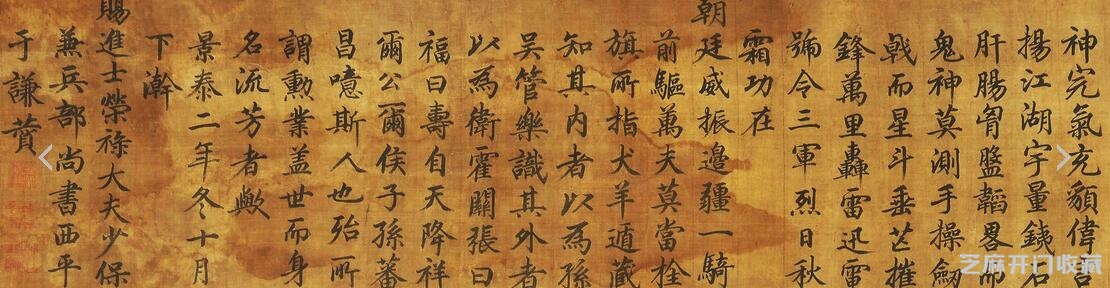 神完氣充䫉偉言
揚江湖宇量鐵石
肝腸胷盤韜畧而
鬼神莫測手操劒
戟而星斗垂芒摧
鋒萬里轟雷迅電
號令三軍烈日秋
霜功在
朝廷威振邊疆一騎
前驅萬夫莫當旌
旗所指犬羊遁藏
知其內者以為孫
吳管樂識其外者
以為衛霍關張曰
福曰壽自天降祥
爾公爾侯子孫蕃
昌噫斯人也殆所
謂勳業蓋世而身
名流芳者歟
景泰二年冬十月
下澣
賜進士榮祿大夫少保
兼兵部尚書西平
于謙贊
芝麻开门收藏